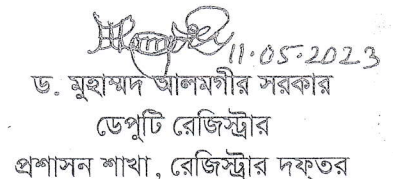 11.05.2023
ড. মুহাম্মদ আলমগীর সরকার
ডেপুটি রেজিস্ট্রার
প্রশাসন শাখা, রেজিস্ট্রার দফতর